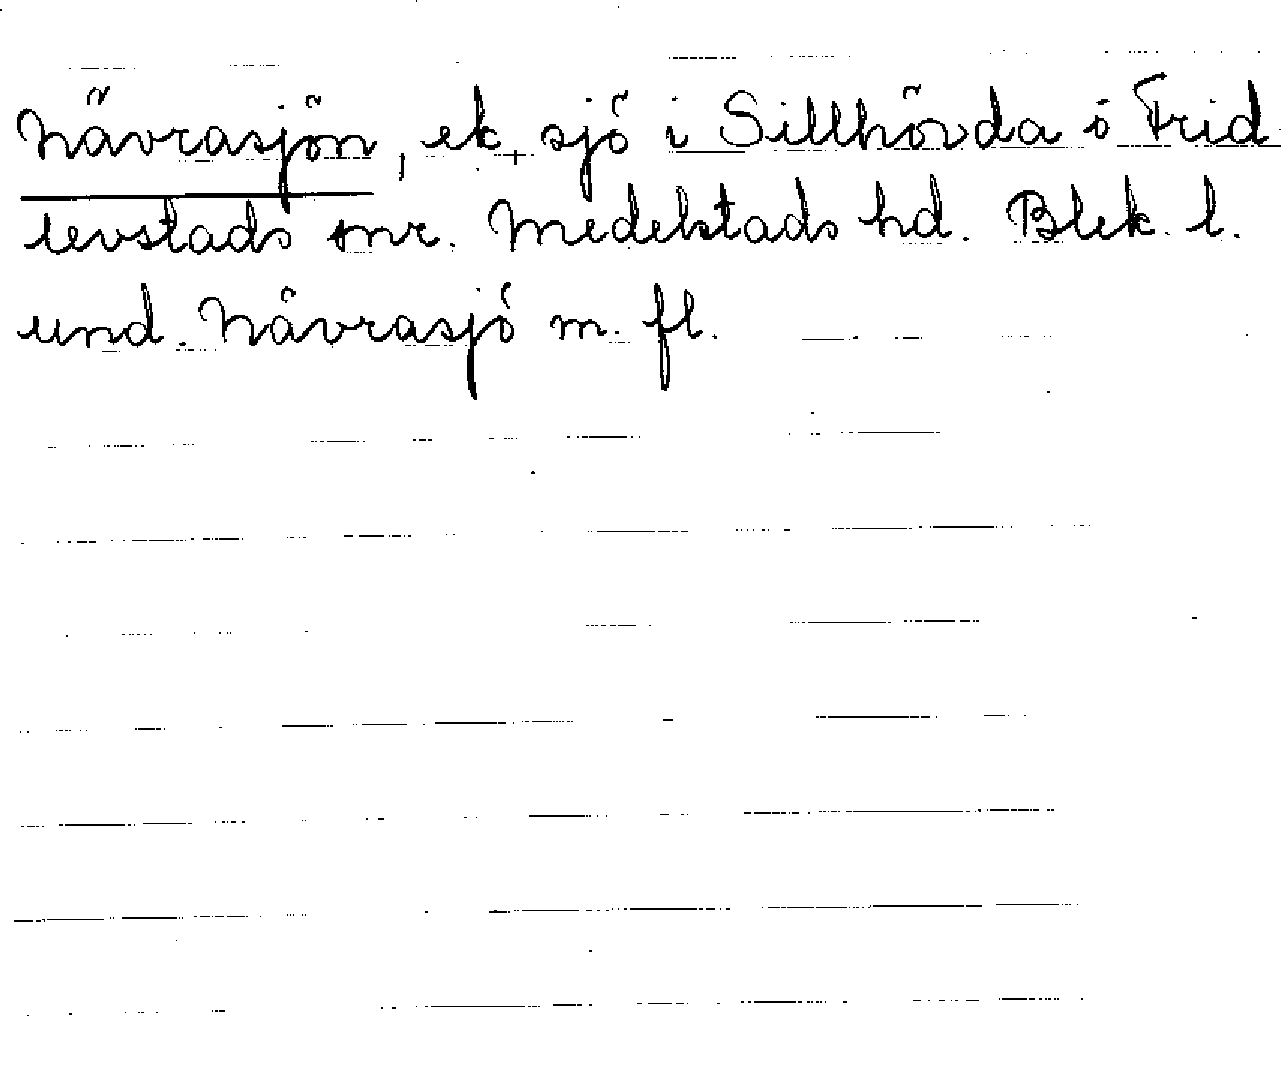 Nävrasjön, ek. sjö i Sillhövda o Frid
levstads snr. Medelstads hd. Blek. l.
und. Nävrasjö m. fl.